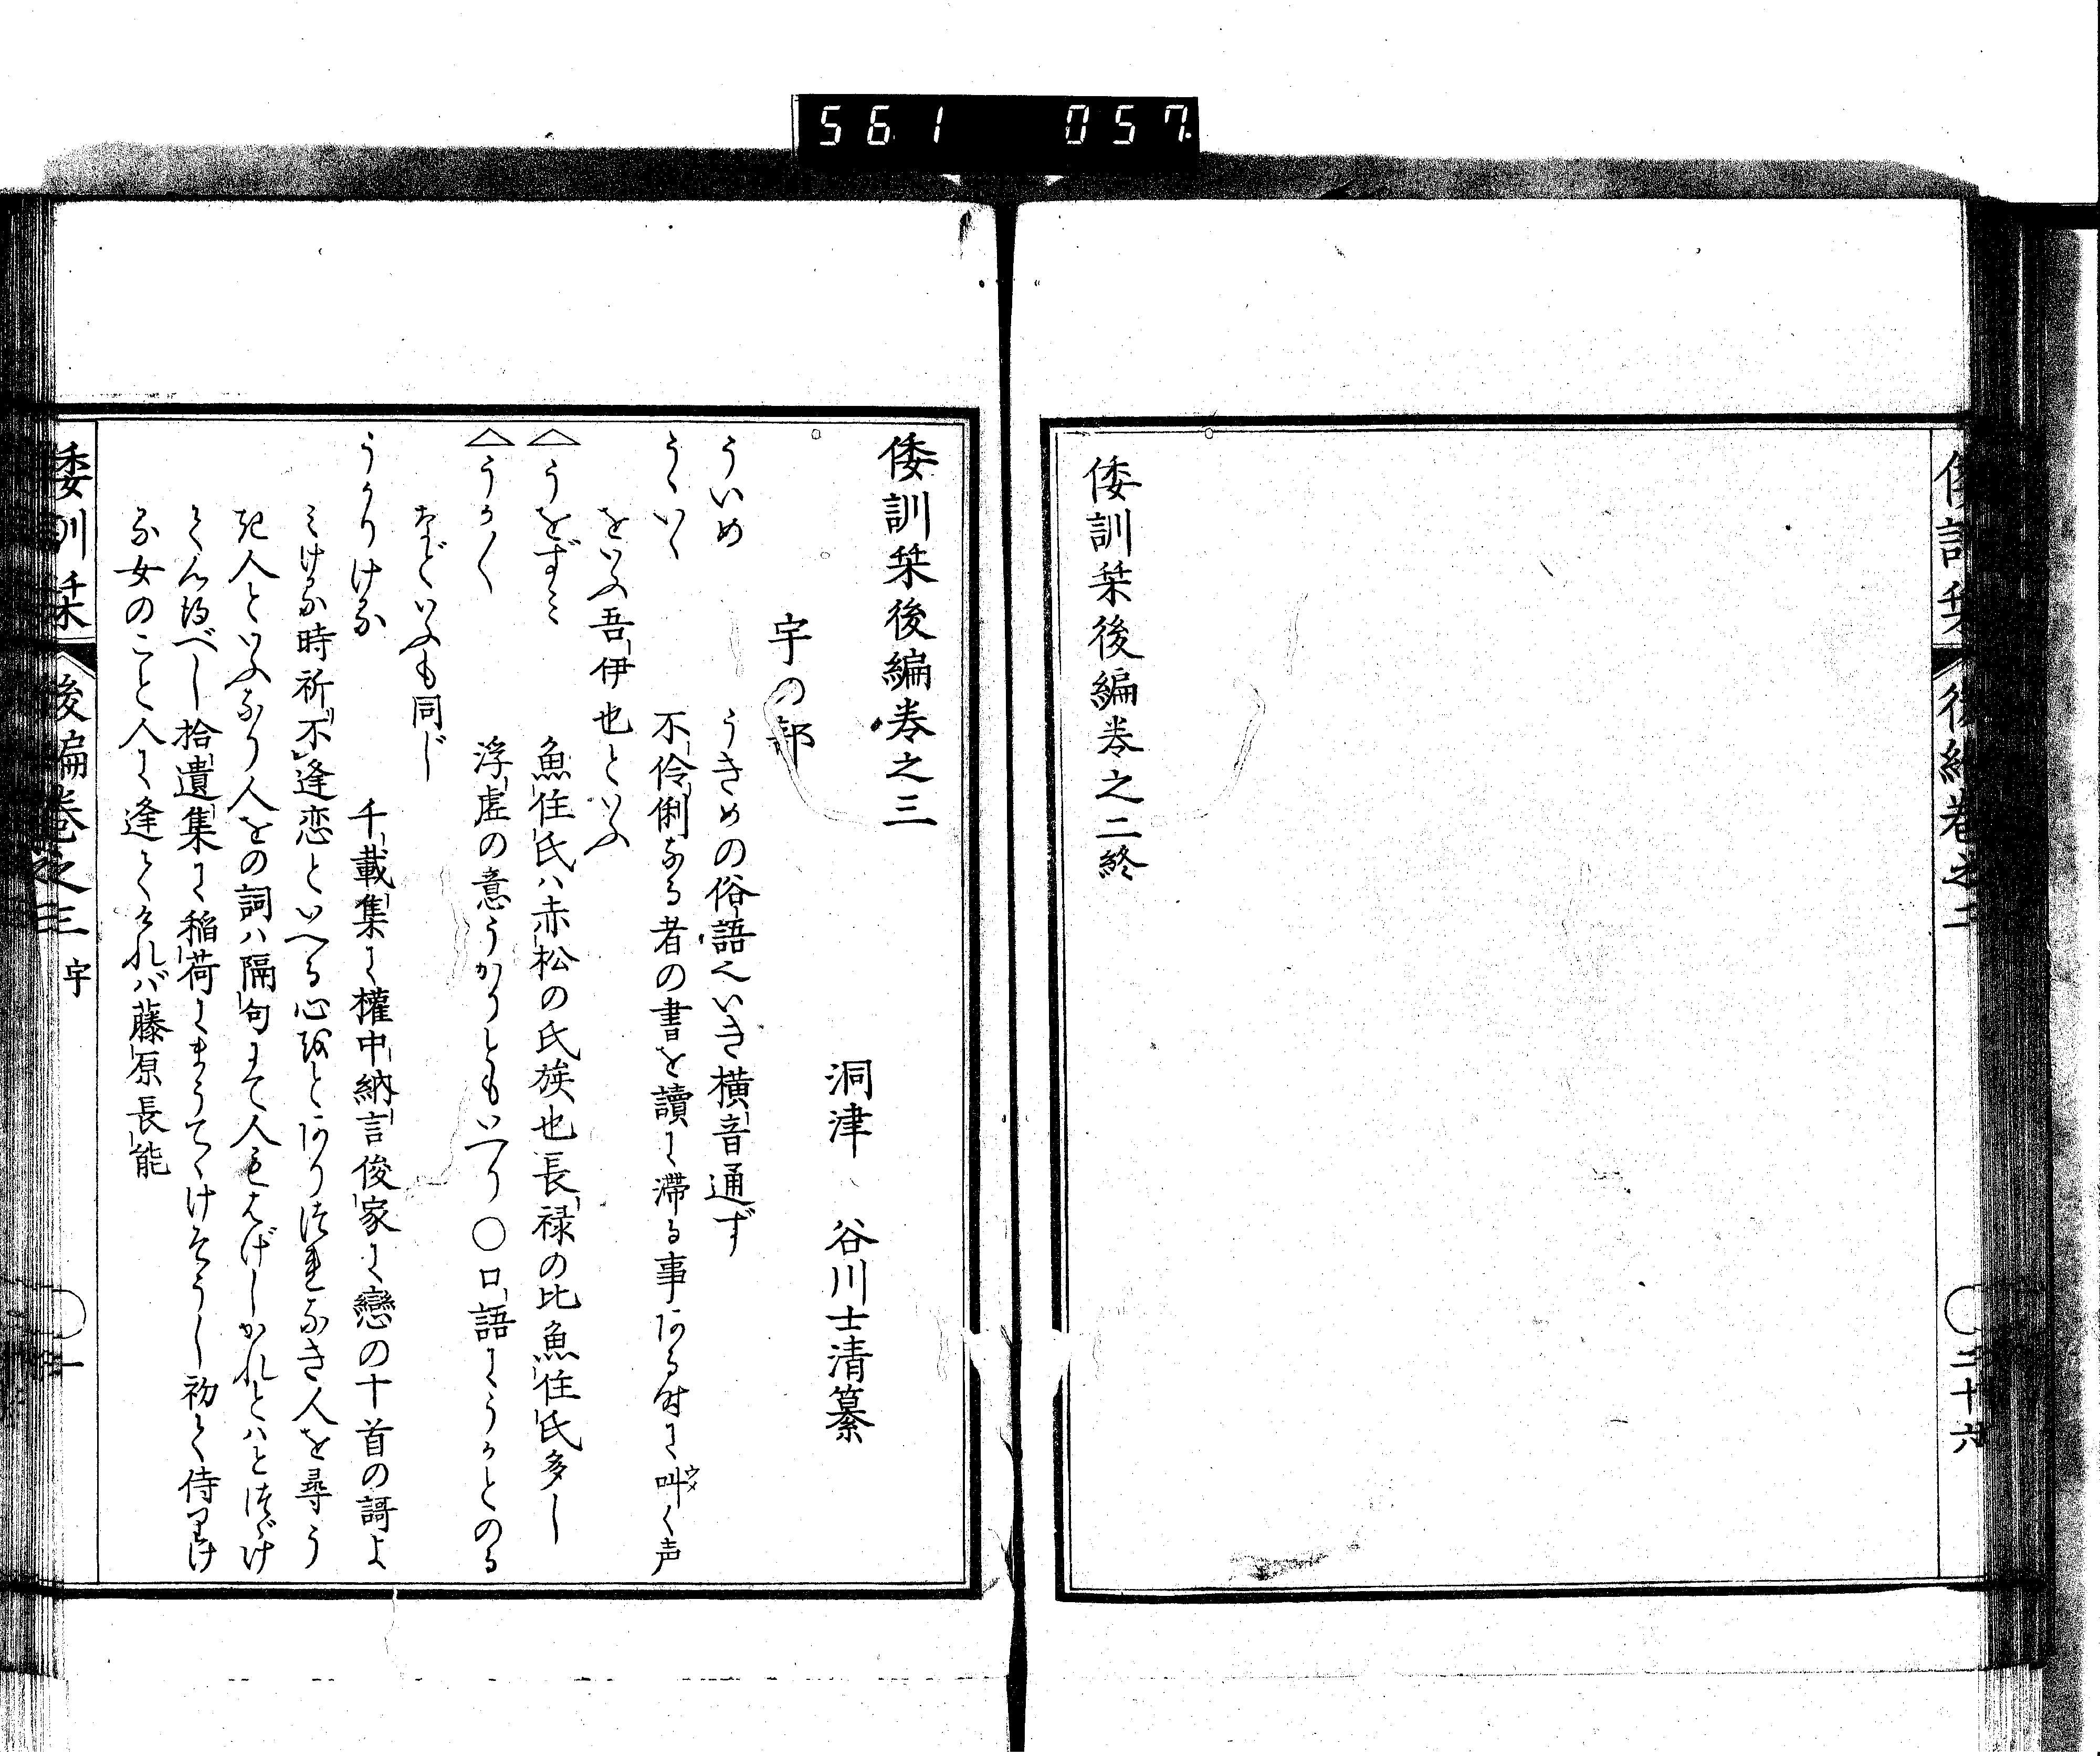 561 057
倭訓栞 後編巻之二 二十六
倭訓栞後編巻之二終
倭訓栞後編巻之三
洞津 谷川士清纂
宇の部
ういめ うきめの俗語へいき横音通ず
うゝいく 不伶俐なる者の書を讀に滞る事ある時に叫く声
をいふ吾伊也といふ
△うをずミ 魚住氏ハ赤松の氏族也長禄の比魚住氏多し
△うか〱 浮虚の意うかりともいへり○口語にうかとのる
などいふも同じ
うかりける 千載集に權中納言俊家に戀の十首の謌よ
ミける時祈不逢恋といへる心をとあり つれなき人を尋う
き人といふなり人をの詞ハ隔句にて人をはげしかれとハとつゞけ
てミるべし拾遺集に稲荷にまうてゝけそうし初て侍りけ
る女のこと人に逢て けれバ藤原長能
倭訓栞 後編巻之三 宇 一